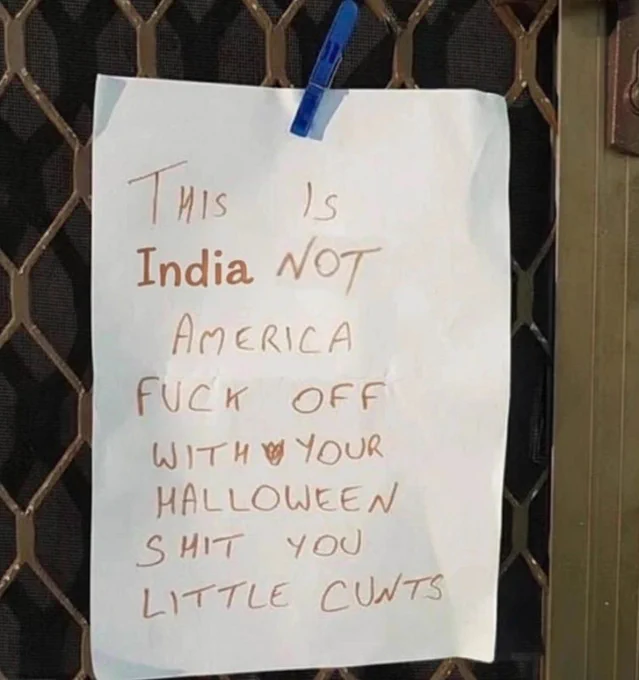 THIS IS
India NOT
AMERICA
FUCK OFF
WITH YOUR
HALLOWEEN
SHIT YOU
LITTLE CUNTS